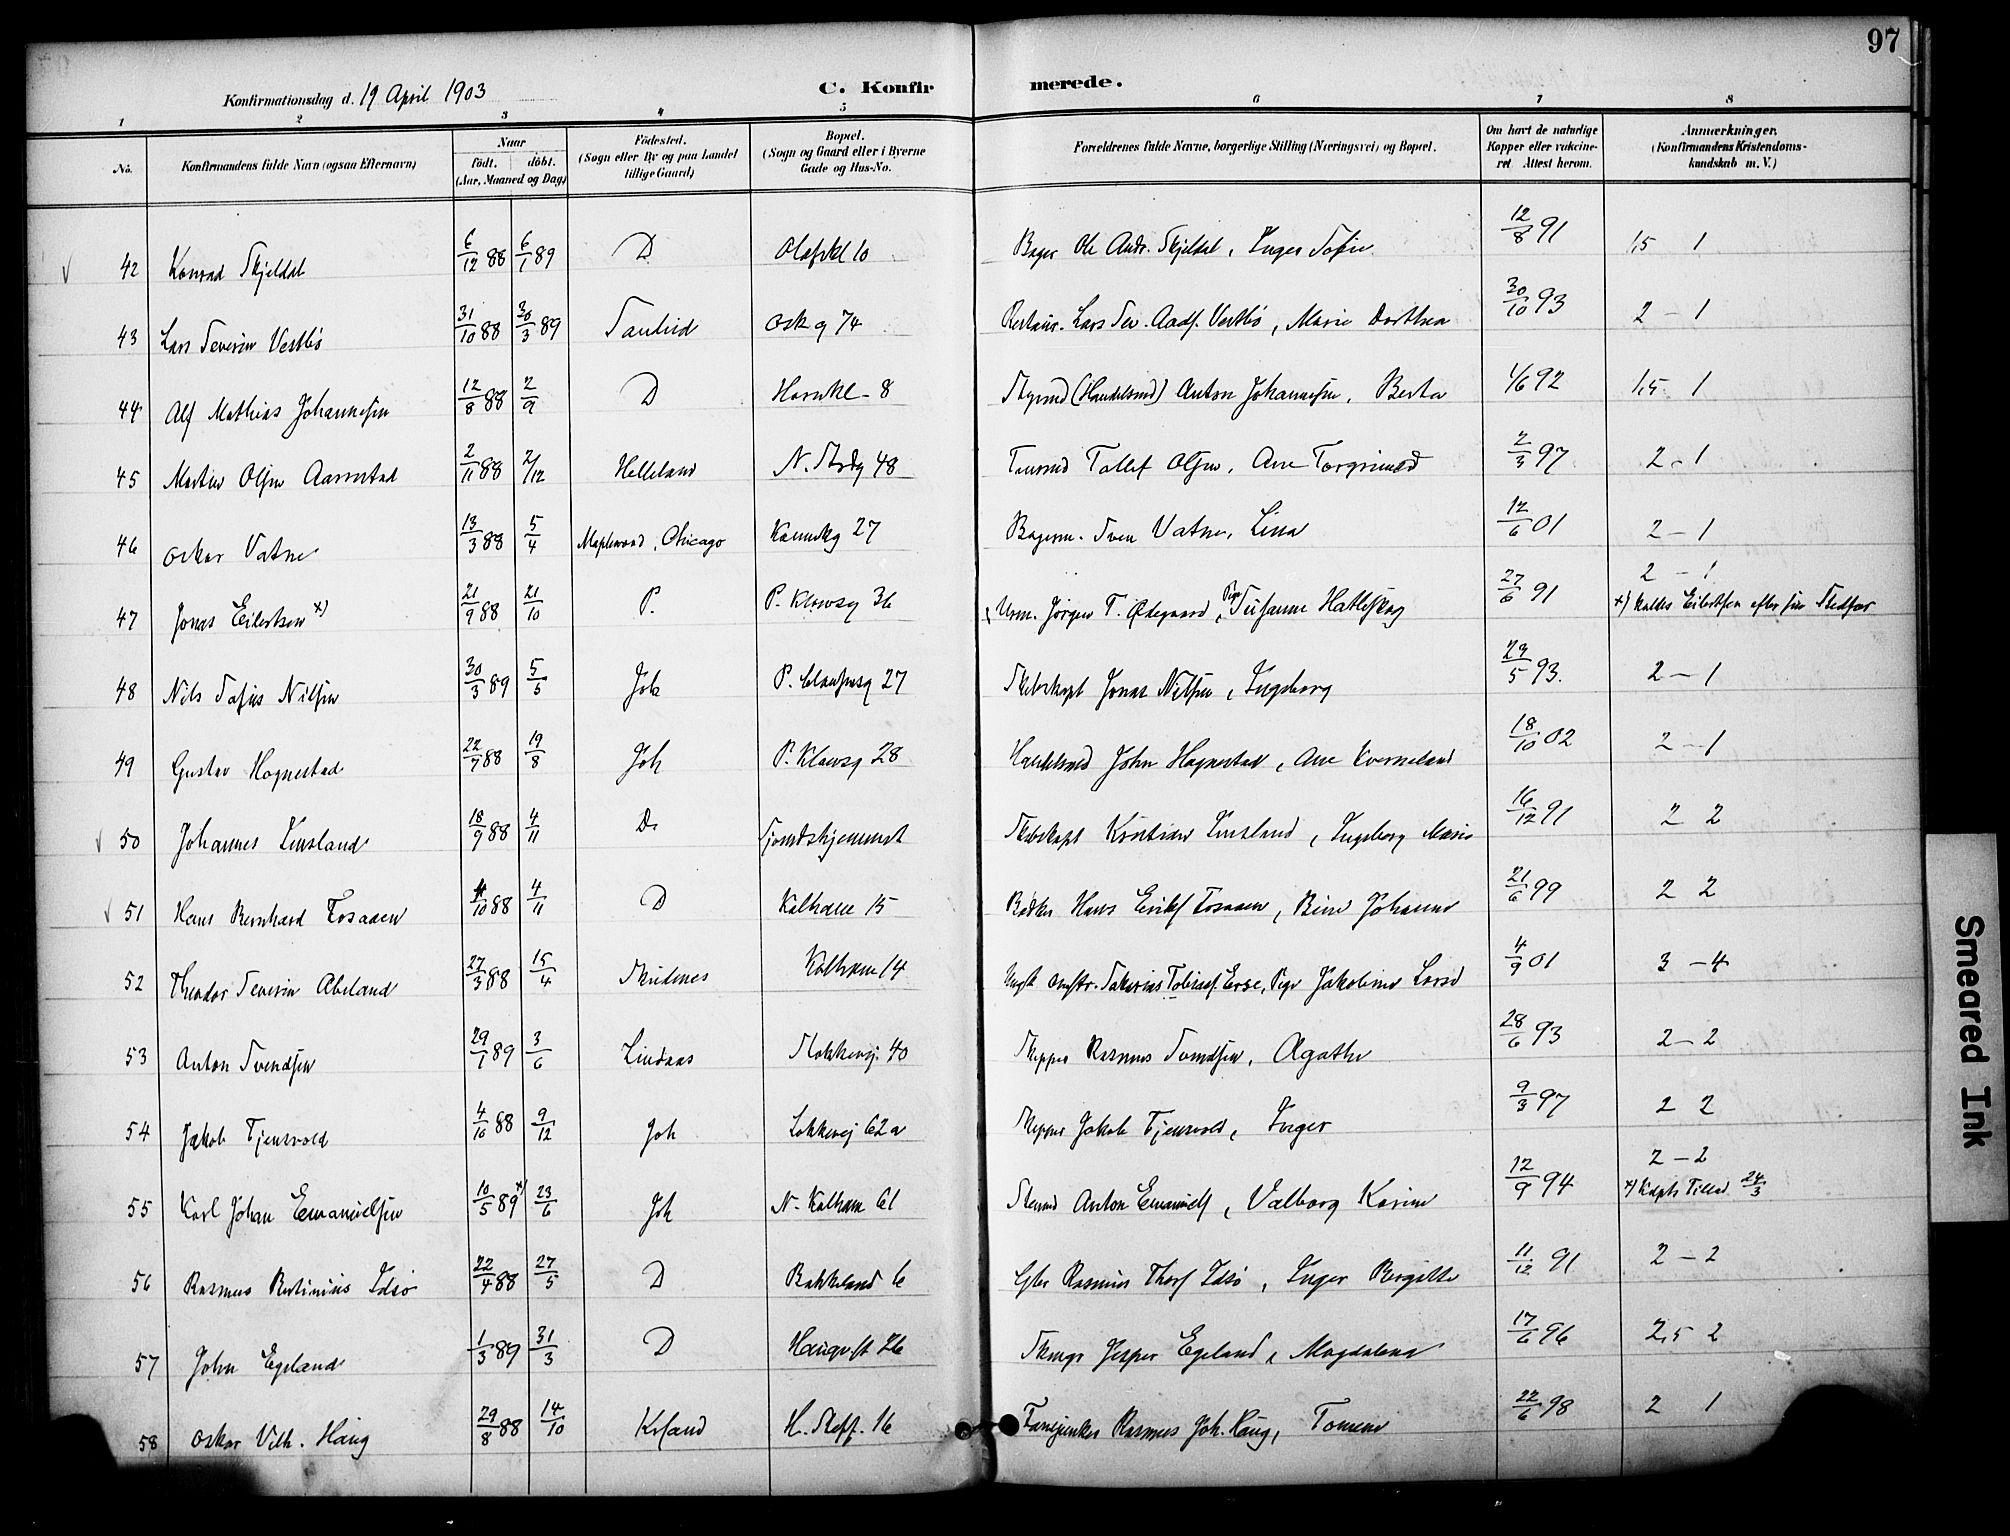 97
Konfirmationsdag d. 19 April 1903 C. Konfirmerede.
1 2 3 4 5 6 7 8
No. Konfirmandens fulde Navn (ogsaa Efternavn) Naar født. døbt. (Aar, Maaned og Dag) Fødested. (Sogn eller By og paa Landet tillige Gaard) Bopæl. (Sogn og Gaard eller i Byerne Gade og Hus-No. Forældrenes fulde Navne, borgerlige Stilling (Næringsvei) og Bopæl. Om havt de naturlige Kopper eller vakcineret Attest herom. Anmærkninger. (Konfirmandens Kristendomskundskab m. V.)
42 Konrad Skjeldal 6/12 88 6/1 89 D Olafskl 10 Bager Ole Andr. Skjeldal, Inger Sofie 12/8 91 1,5 1
43 Lars Severin Vestbø 31/10 88 30/3 89 Sandeid Osk g 74 Lars Sev. Aadf. Vestbø, Marie Dorthea 30/10 93 2 - 1
44 Alf Mathias Johannesen 12/8 88 2/9 D Hornkl - 8 (Handelsmd) Anton Johannesen, Berta 1/6 92 1,5 1
45 Martin Olsen Aarrestad 2/11 88 2/12 Helleland N. Strdg 48 Tollef Olsen, Ane Torgrimsd 2/3 97 2 - 1
46 Oskar Vatne 13/3 88 5/4 Maplewood, Chicago Kannikg 27 Bagerm. Sven Vatne, Lina 12/6 01 2 - 1
47 Jonas Eilertsen x) 21/9 88 21/10 P. P. Klowsg 36 Urm. Jørgen T. Ødegaard, Pige Susanne Hatleskog 27/6 91 2 - 1
x) kaldes Eilertsen efter sin Stedfar
48 Nils Tasius Nilsen 30/3 89 5/5 Joh P. Clausensg 27 Skibskapt Jonas Nilsen, Ingeborg 23/5 93. 2 - 1
49 Gustav Hognestad 22/7 88 19/8 Joh P. Klowsg 28 Handelsmd John Hognestad, Ane Kverneland 18/10 02 2 - 1
50 Johannes Linsland 18/9 88 4/11 D. Skibskapt Kristian Linsland, Ingeborg Marie 16/12 91 2 2
51 Hans Bernhard Fosaaen 4/10 88 4/11 D Kalhame 15 Bødker Hans Erikf Fosaaen, Bine Johanne 21/6 99 2 2
52 Theodor Severin Abeland 27/3 88 15/4 Skudenes Kalham 14 Sakarias Tobiasf. Erse, Pige Jakobine Larsd 4/9 01 3 - 4
53 Anton Svendsen 29/1 89 3/6 Lindaas Stokkevej 40 Skipper Rasmus Svendsen, Agathe 28/6 93 2 - 2
54 Jakob Tjensvold 4/10 88 9/12 Joh Lokkevej 62a Skipper Jakob Tjensvold, Inger 9/3 97 2 2
55 Karl Johan Emanuelsen 10/5 89 x) 23/6 Joh N. Kalham 61 Anton Emanuels, Valborg Karine 12/9 94 2 - 2
56 Rasmus Bertinius Idsø 22/4 88 27/5 D Bakkeland 6 Rasmus Thorf Idsø, Inger Birgitte 11/12 91 2 - 2
57 John Egeland 1/3 89 31/3 D Jesper Egeland, Magdalena 17/6 96 2,5 2
58 Oskar Vilh. Haug 29/8 88 14/10 Krsand H. Steff. 16 Fanejunker Rasmus Joh. Haug, 22/6 98 2 1
Smeared Ink